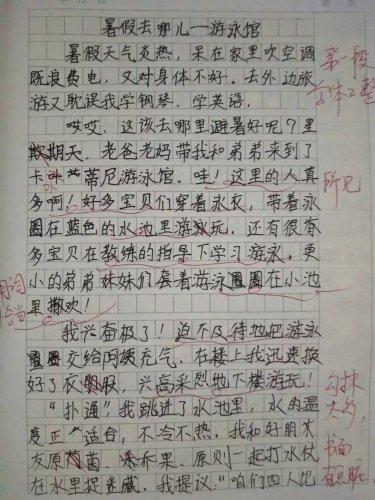 暑假去哪儿—游泳馆
暑假天气炎热，呆在家里吹空调
既浪费电，又对身体不好。去外边旅
游又耽误我学钢琴、学英语。
哎哎，这该去哪里避暑好呢？星
期天，老爸老妈带我和弟弟来到了
卡蒂尼游泳馆。哇！这里的人真
多啊！好多宝贝们穿着泳衣，带着泳
圈在蓝色的水池里游泳玩，还有很有
多宝贝在教练的指导下学习游泳，更
小的弟弟妹妹们套着游泳圈在小池
里撒欢！
我兴奋极了！迫不及待地把游泳
圈交给阿姨充气，在楼上我迅速换
好了衣服，兴高采烈地下楼游玩！
“扑通”我跳进了水池里，水的温
度正适合，不冷不热。我和好朋友
友原菌、乔果、原则一起打水仗
在水里捉迷藏。我提议：“咱们四人比
第一段
字体工整
所见
用词
恰当
勾抹
太多
书面